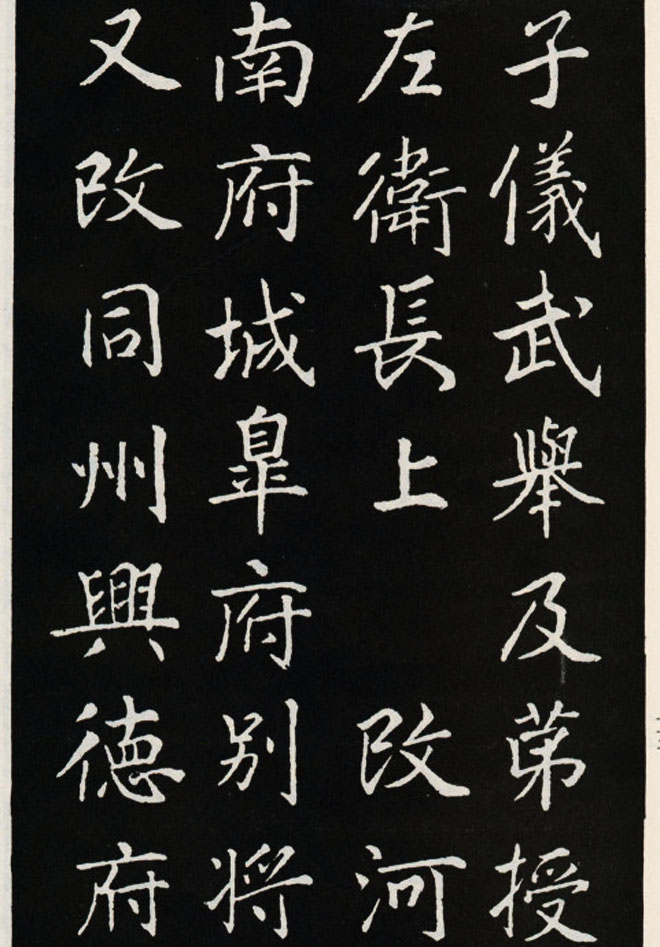 子儀武舉及苐授
左衛長上 改河
南府城皐府别將
又改同州興徳府